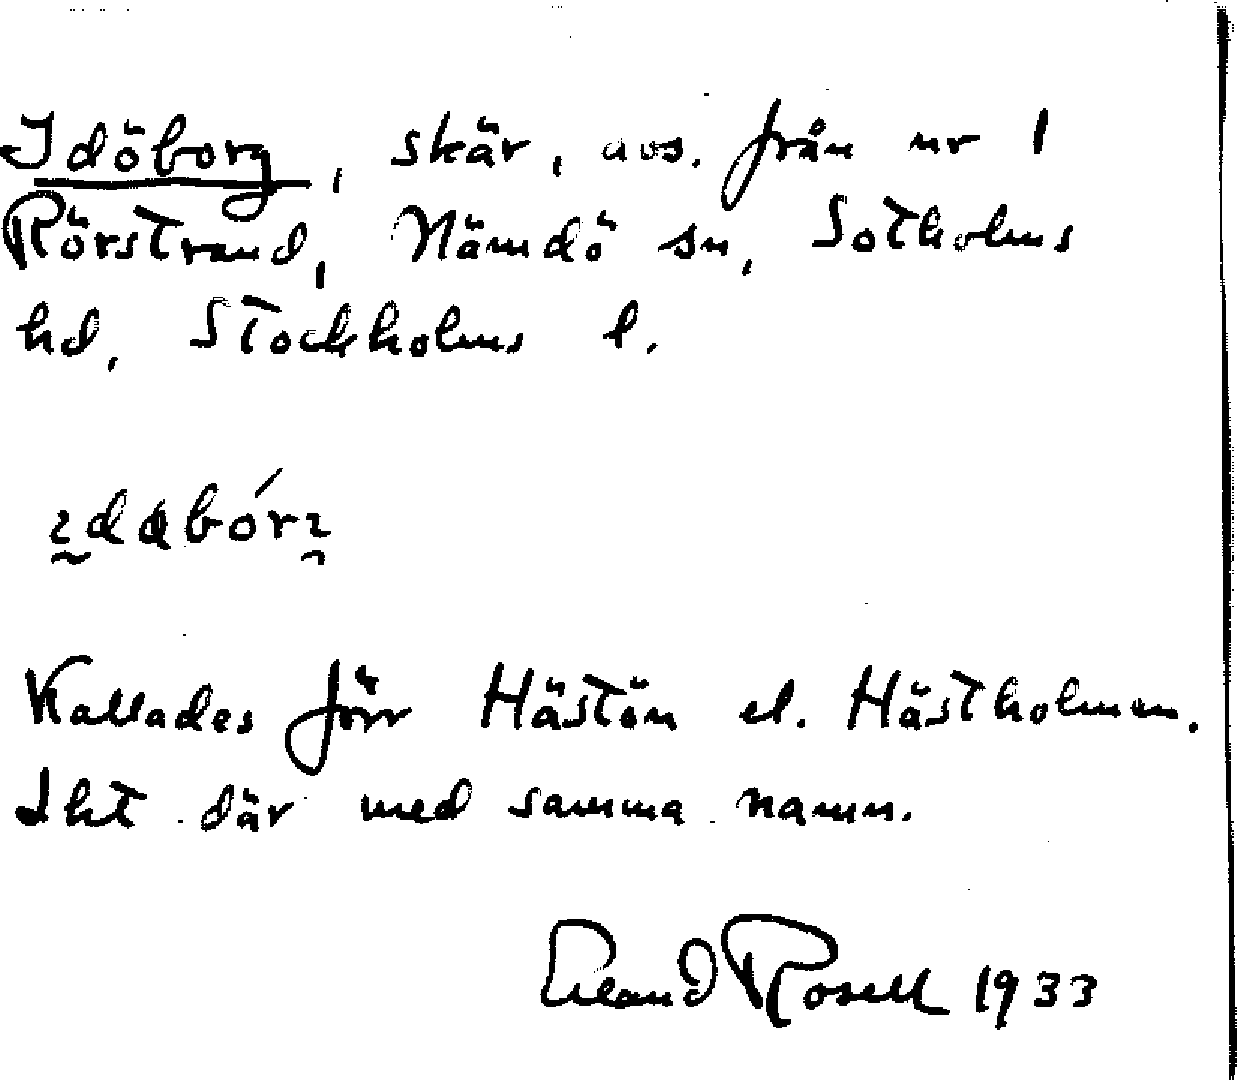 Idöborg, skär, avs. från nr 1
Rörstrand, Nämdö sn, Sotholms
hd, Stockholms l.
Kallades förr Hästön el. Hästholmen.
Lht där med samma namn.
Erland Rosell 1933